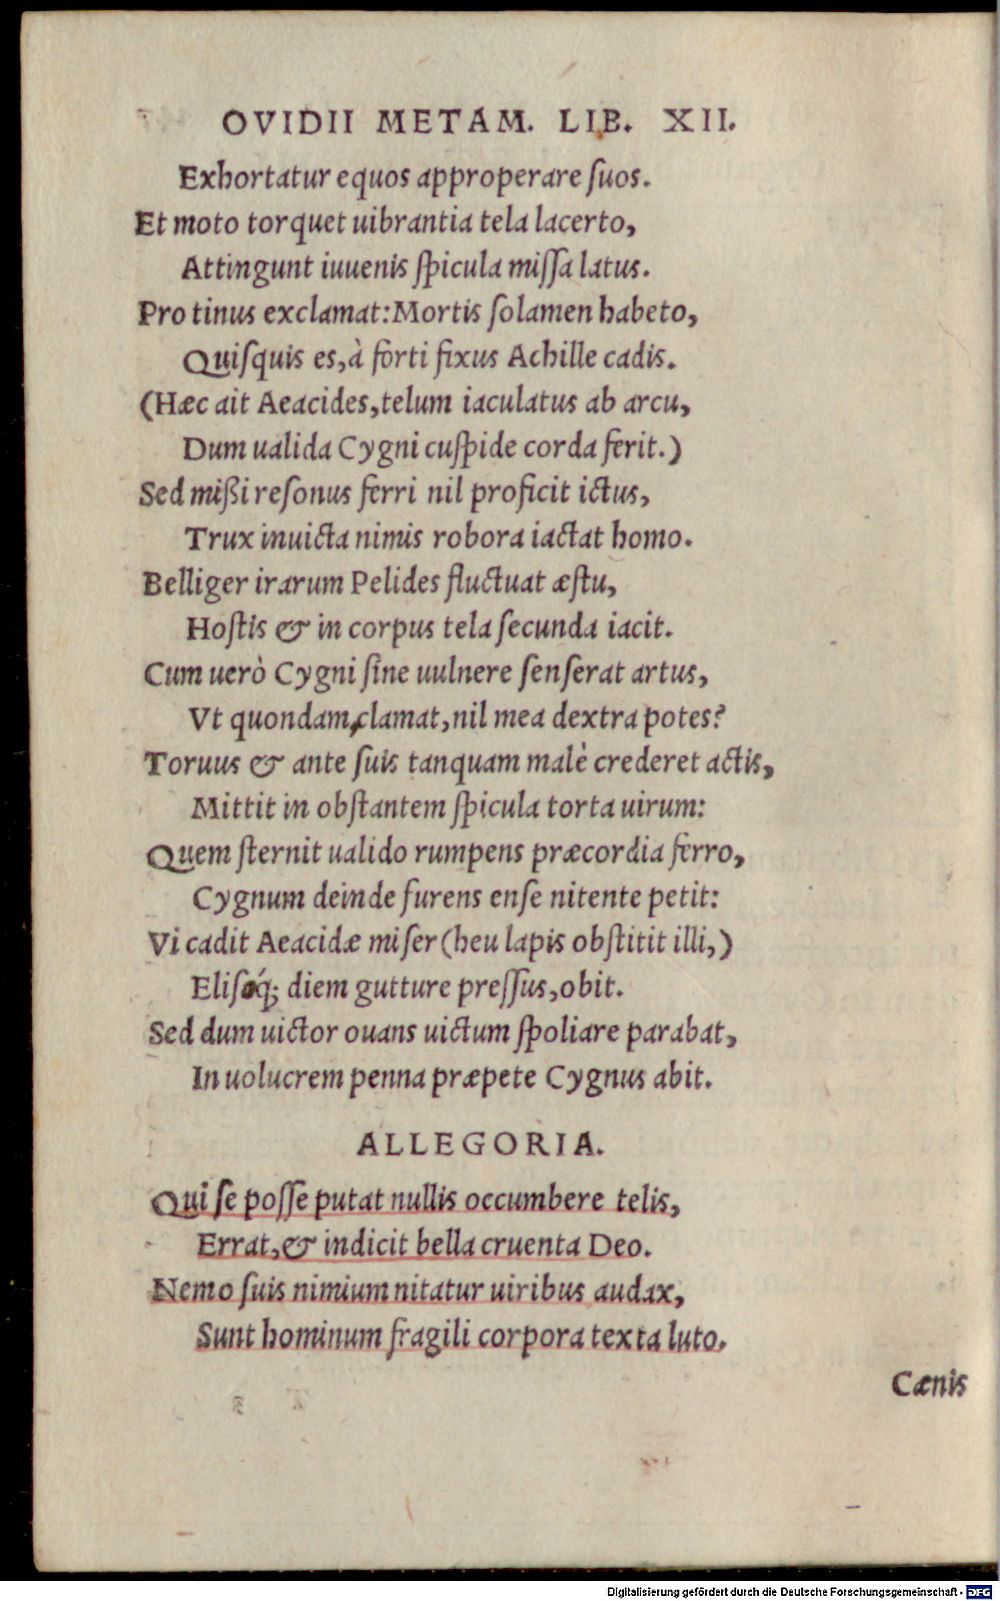 OVIDII METAM. LIB. XII.
Exhortatur equos approperare ſuos.
Et moto torquet uibrantia tela lacerto,
Attingunt iuuenis ſpicula miſſa latus.
Protinus exclamat: Mortis ſolamen habeto,
Quiſquis es, à forti fixus Achille cadis.
(Hæc ait Aeacides, telum iaculatus ab arcu,
Dum ualida Cygni cuſpide corda ferit.)
Sed mißi reſonus ferri nil proficit ictus,
Trux inuicta nimis robora iactat homo.
Belliger irarum Pelides fluctuat æſtu,
Hoſtis & in corpus tela ſecunda iacit.
Cum uerò Cygni ſine uulnere ſenſerat artus,
Vt quondam, clamat, nil mea dextra potes?
Toruus & ante ſuis tanquam malè crederet actis,
Mittit in obſtantem ſpicula torta uirum:
Quem ſternit ualido rumpens præcordia ferro,
Cygnum deinde furens enſe nitente petit:
Vi cadit Aeacidæ miſer (heu lapis obſtitit illi,)
Eliſoq́; diem gutture preſſus, obit.
Sed dum uictor ouans uictum ſpoliare parabat,
In uolucrem penna præpete Cygnus abit.
ALLEGORIA.
Qui ſe poſſe putat nullis occumbere telis,
Errat, & indicit bella cruenta Deo.
Nemo ſuis nimium nitatur uiribus audax,
Sunt hominum fragili corpora texta luto.
Cænis
Digitalisierung gefördert durch die Deutsche Forschungsgemeinschaft - DFG